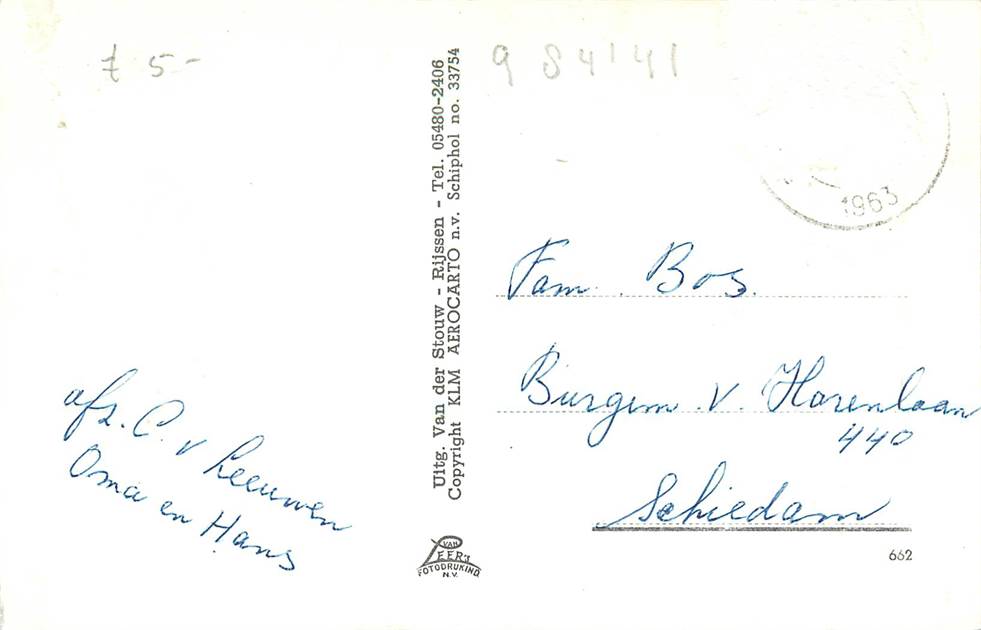 7 5-
9 S4141
1963
Uitg. Van der Stouw - Rijssen - Tel. 05480-2406
Copyright KLM AEROCARTO n.v. Schiphol no. 33754
Fam. Bos.
Burgem. v. Harenlaan
440
Schiedam
afz. C. v Leeuwen
Oma en Hans
VAN
LEER'S
FOTODRUKIND.
N.V.
662